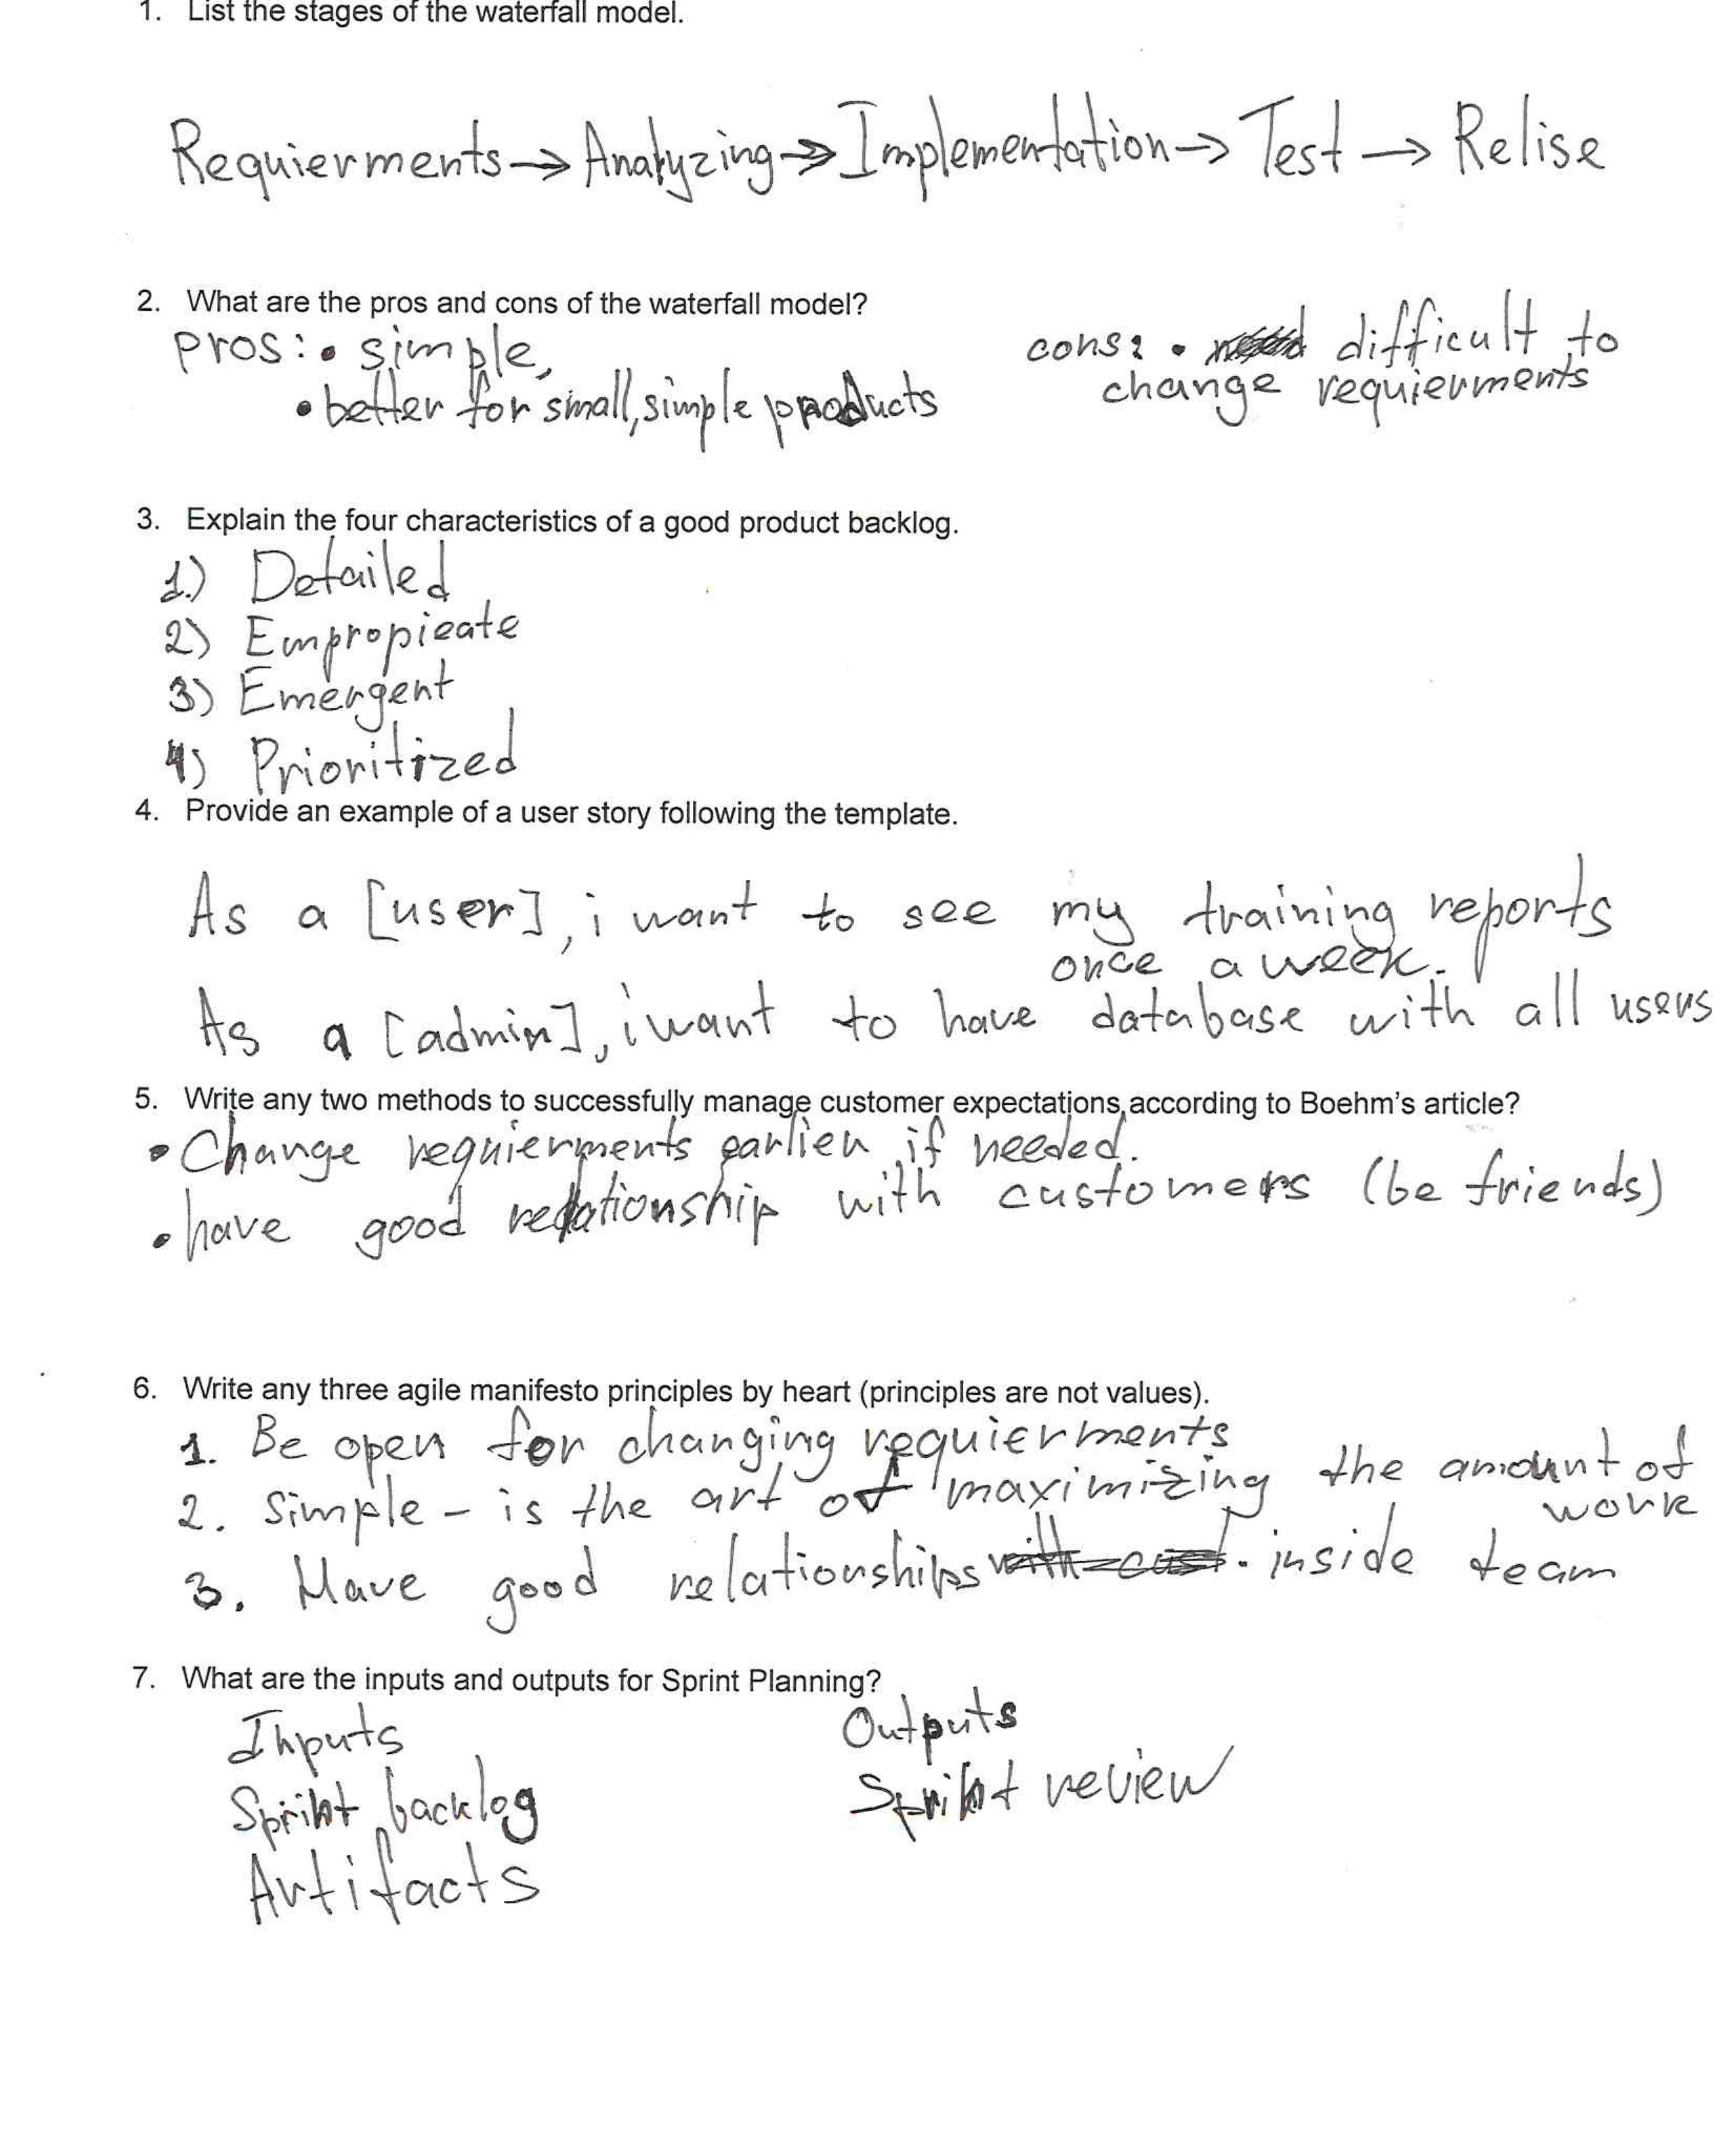 1. List the stages of the waterfall model.
Requierments → Analyzing → Implementation → Test → Relise
2. What are the pros and cons of the waterfall model?
pros: • simple,
• better for small, simple products
cons: • difficult to
change requierments
3. Explain the four characteristics of a good product backlog.
1.) Detailed
2) Empropieate
3) Emergent
4) Prioritized
4. Provide an example of a user story following the template.
As a [user], i want to see my training reports
once a week.
As a [admin], i want to have database with all users
5. Write any two methods to successfully manage customer expectations, according to Boehm's article?
• Change requierments earlier, if needed.
• have good relationship with customers (be friends)
6. Write any three agile manifesto principles by heart (principles are not values).
1. Be open for changing requierments
2. Simple - is the art of maximizing the amount of
work
3. Have good relationships inside team
7. What are the inputs and outputs for Sprint Planning?
Inputs
Sprint backlog
Artifacts
Outputs
Sprint review